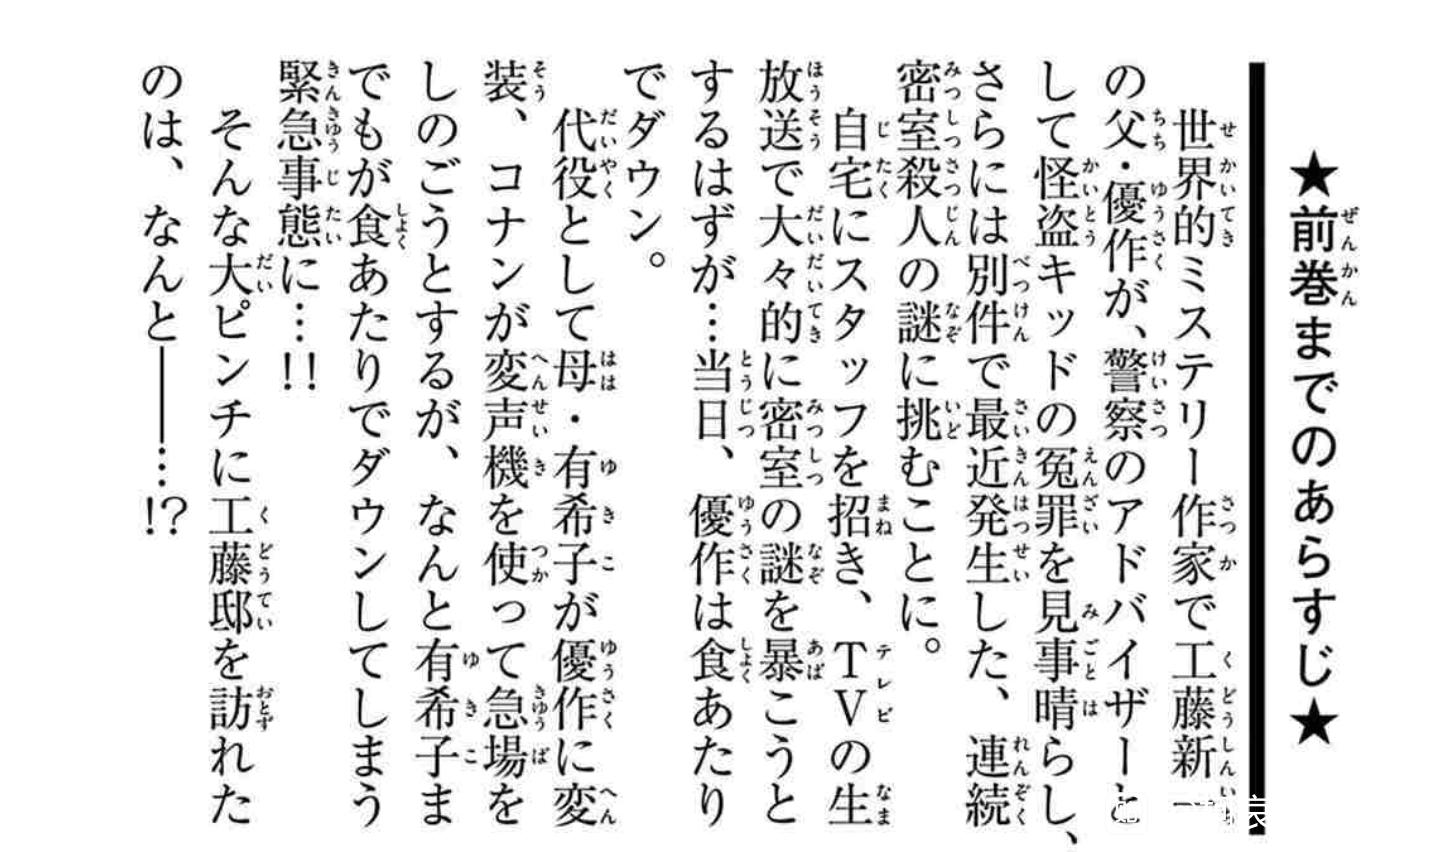 ★前巻までのあらすじ★
世界的ミステリー作家で工藤新一
の父・優作が、警察のアドバイザーと
して怪盗キッドの冤罪を見事晴らし、
さらには別件で最近発生した、連続
密室殺人の謎に挑むことに。
自宅にスタッフを招き、TVの生
放送で大々的に密室の謎を暴こうと
するはずが…当日、優作は食あたり
でダウン。
代役として母・有希子が優作に変
装、コナンが変声機を使って急場を
しのごうとするが、なんと有希子ま
でもが食あたりでダウンしてしまう
緊急事態に…!!
そんな大ピンチに工藤邸を訪れた
のは、なんと――…!?